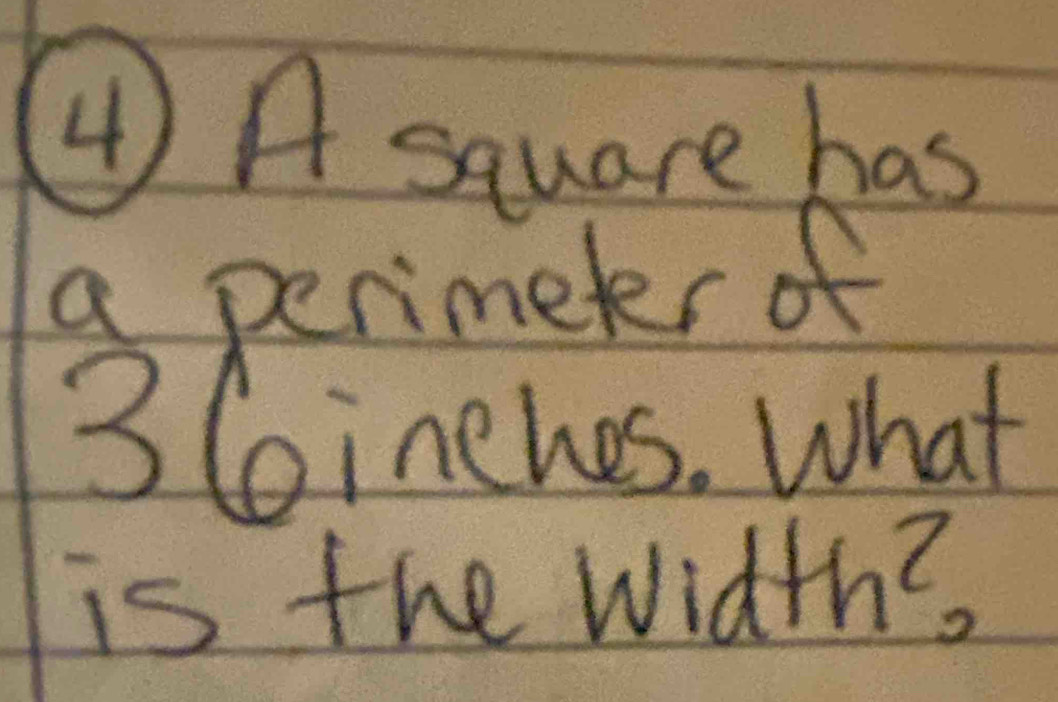 ④ A square has
a perimeter of
36 inches. What
is the width?